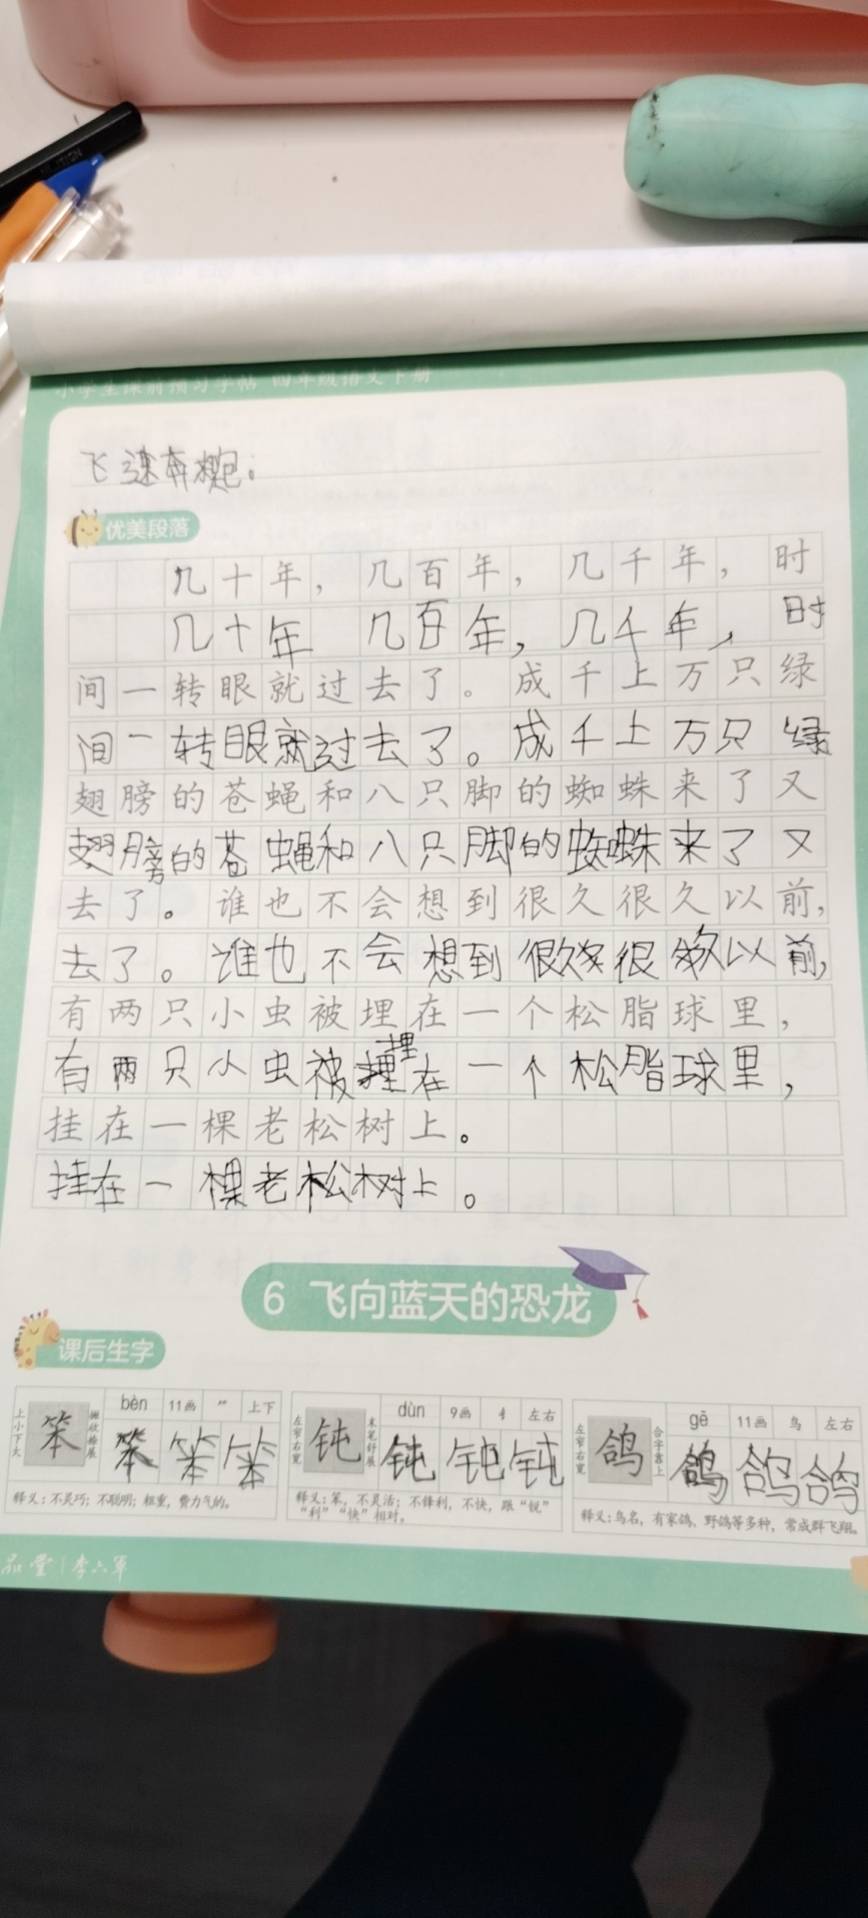 小学生课前预习字帖 四年级语文下册
飞速奔跑。
优美段落
几十年，几百年，几千年，时
几十年 几百年，几千年，时
间一转眼就过去了。成千上万只绿
间一转眼就过去了。成千上万只绿
翅膀的苍蝇和八只脚的蜘蛛来了又
翅膀的苍蝇和八只脚的蜘蛛来了又
去了。谁也不会想到很久很久以前，
去了。谁也不会想到很久很久以前，
有两只小虫被埋在一个松脂球里，
有两只小虫被埋在一个松脂球里，
挂在一棵老松树上。
挂在一棵老松树上。
6 飞向蓝天的恐龙
课后生字
上小下大 笨 撇捺伸展 bèn 11画 ⺮ 上下
笨 笨 笨
释义：不灵巧；不聪明；粗重，费力气的。
左窄右宽 钝 末笔舒展 dùn 9画 钅 左右
钝 钝 钝
释义：笨，不灵活；不锋利，不快，跟“锐”
“利”“快”相对。
左窄右宽 鸽 合字靠上 gē 11画 鸟 左右
鸽 鸽 鸽
释义：鸟名，有家鸽、野鸽等多种，常成群飞翔。
品堂｜李六军